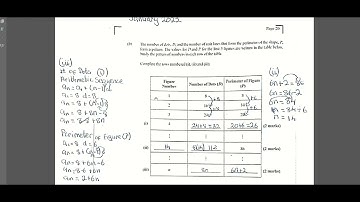 January 2023
Page 20
(b) The number of dots, D, and the number of unit lines that form the perimeter of the shape, P,
form a pattern. The values for D and P for the first 3 figures are written in the table below.
Study the pattern of numbers in each row of the table.
Complete the rows numbered (i), (ii) and (iii).
Figure Number
Number of Dots (D)
Perimeter of Figure (P)
1 8 8
2
3
(i) 4 24+8=32 20+6=26 (2 marks)
(ii) 14 (2 marks)
(iii) n 8n 6n+2 (2 marks)
(iii)
# of Dots (D)
Arithmetic Sequence
an = a1 + (n-1)d
a1 = 8 d = 8
an = 8 + (n-1)8
an = 8 + 8n - 8
an = 8-8 + 8n
Perimeter of Figure (P)
a1 = 8 d = 6
an = 8 + (n-1)6
an = 8 + 6n - 6
an = 8-6 + 6n
an = 2 + 6n
(ii)
6n + 2 = 86
6n = 86 - 2
6n = 84
n = 14